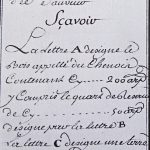 Sçavoir
La Lettre A designe le
Bois appellé du
Contenant Cy 200 arp
y Compris le quart de
de Cy 50 arp
designé par la lettre B
La lettre C designe une terre